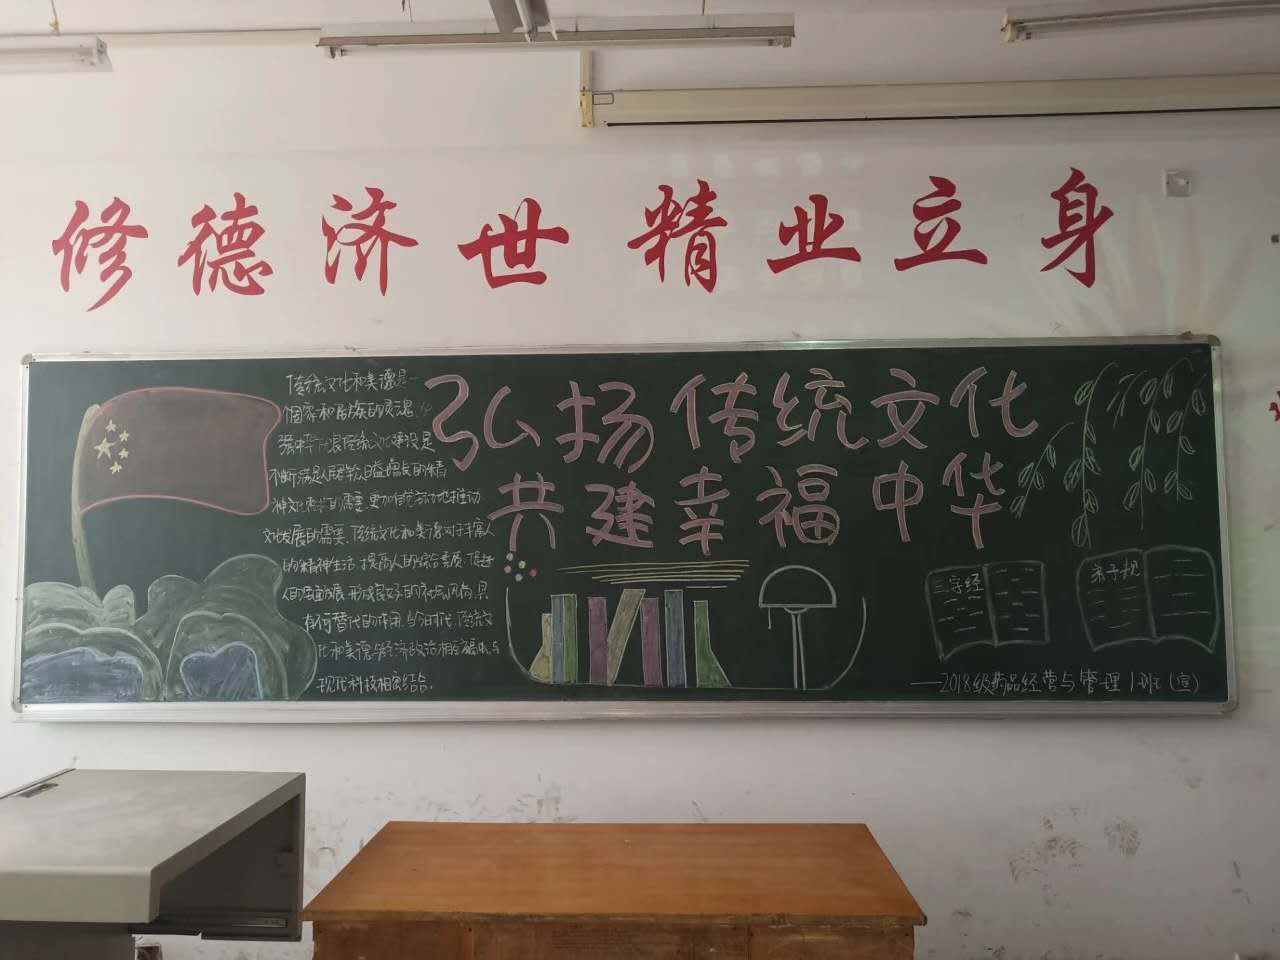 修德济世 精业立身
弘扬传统文化
共建幸福中华
传统文化和美德是一
個家和民族的灵魂
不断满足人民群众日益增长的精
神文化需求的需要,更加自觉主动地推动
文化发展的需要,传统文化和美德对于丰富人
的精神生活,提高人的综合素质,促进
人的全面发展,形成良好的社会风尚,具
有何替代的作用,当今时代,传统文
化和美德与经济政治相互
现代科技相家结合.
三字经
弟子规
——2018级药品经营与管理1班(宣)